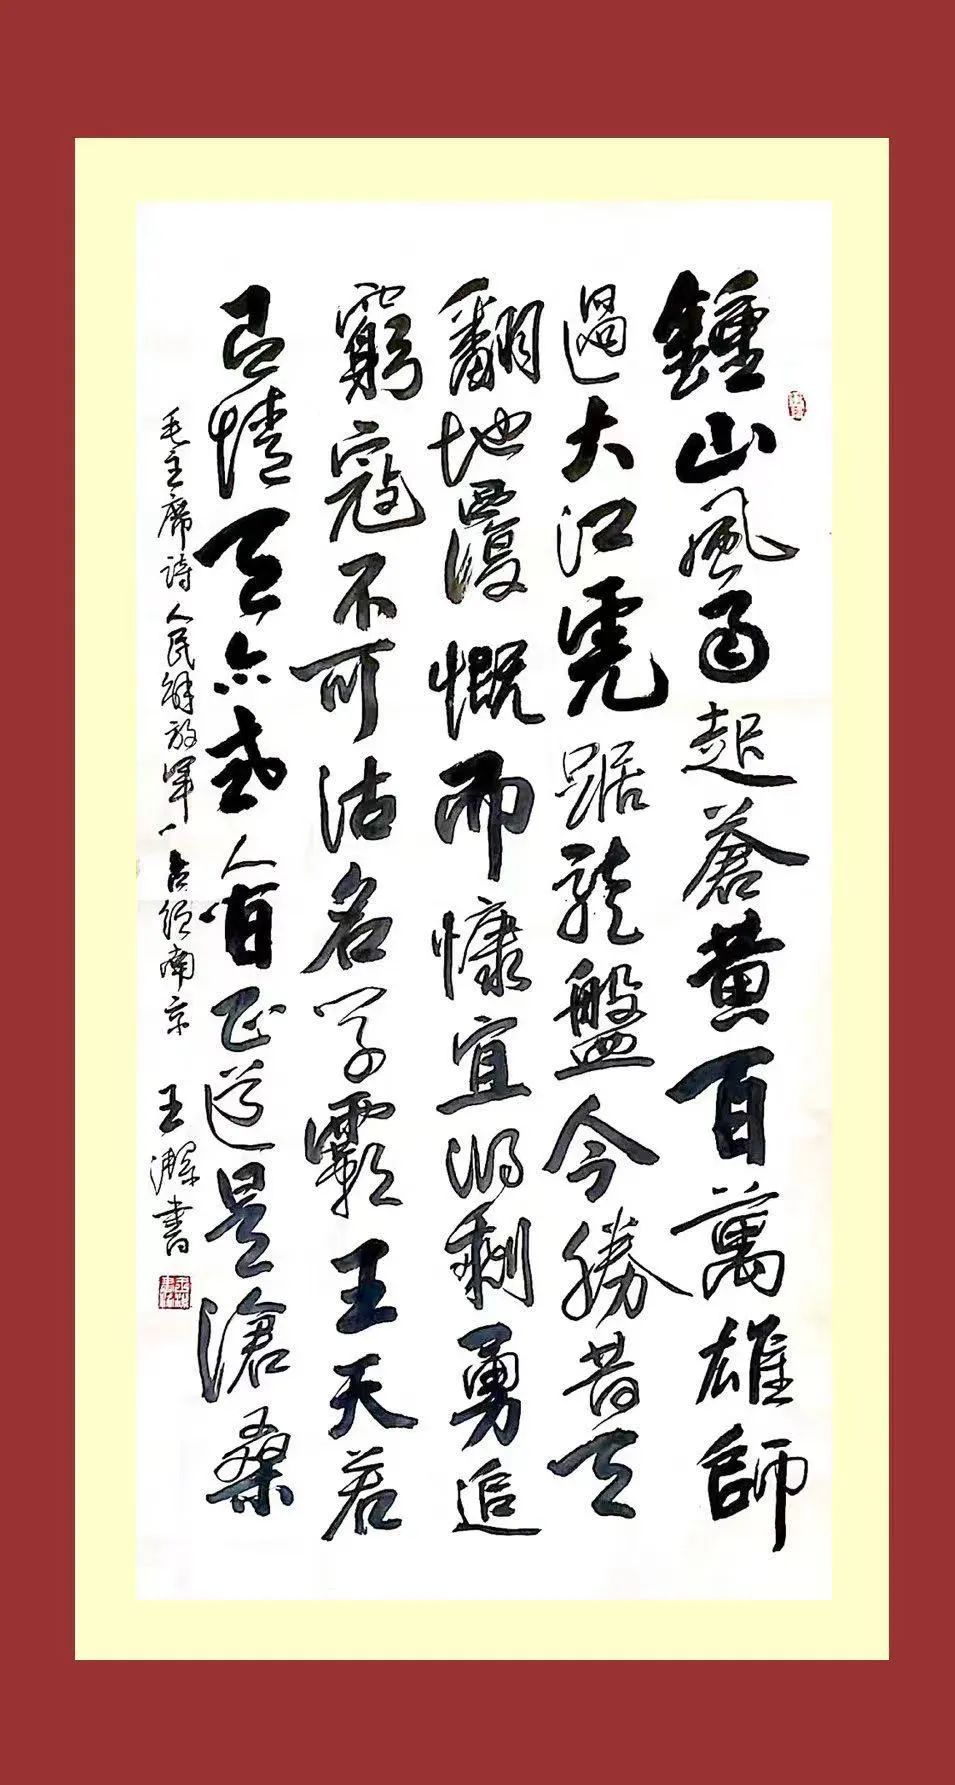 鍾山風雨起蒼黃百萬雄師
過大江虎踞龍盤今勝昔天
翻地覆慨而慷宜將剩勇追
窮寇不可沽名學霸王天若
有情天亦老人間正道是滄桑
毛主席詩人民解放軍占領南京 王書